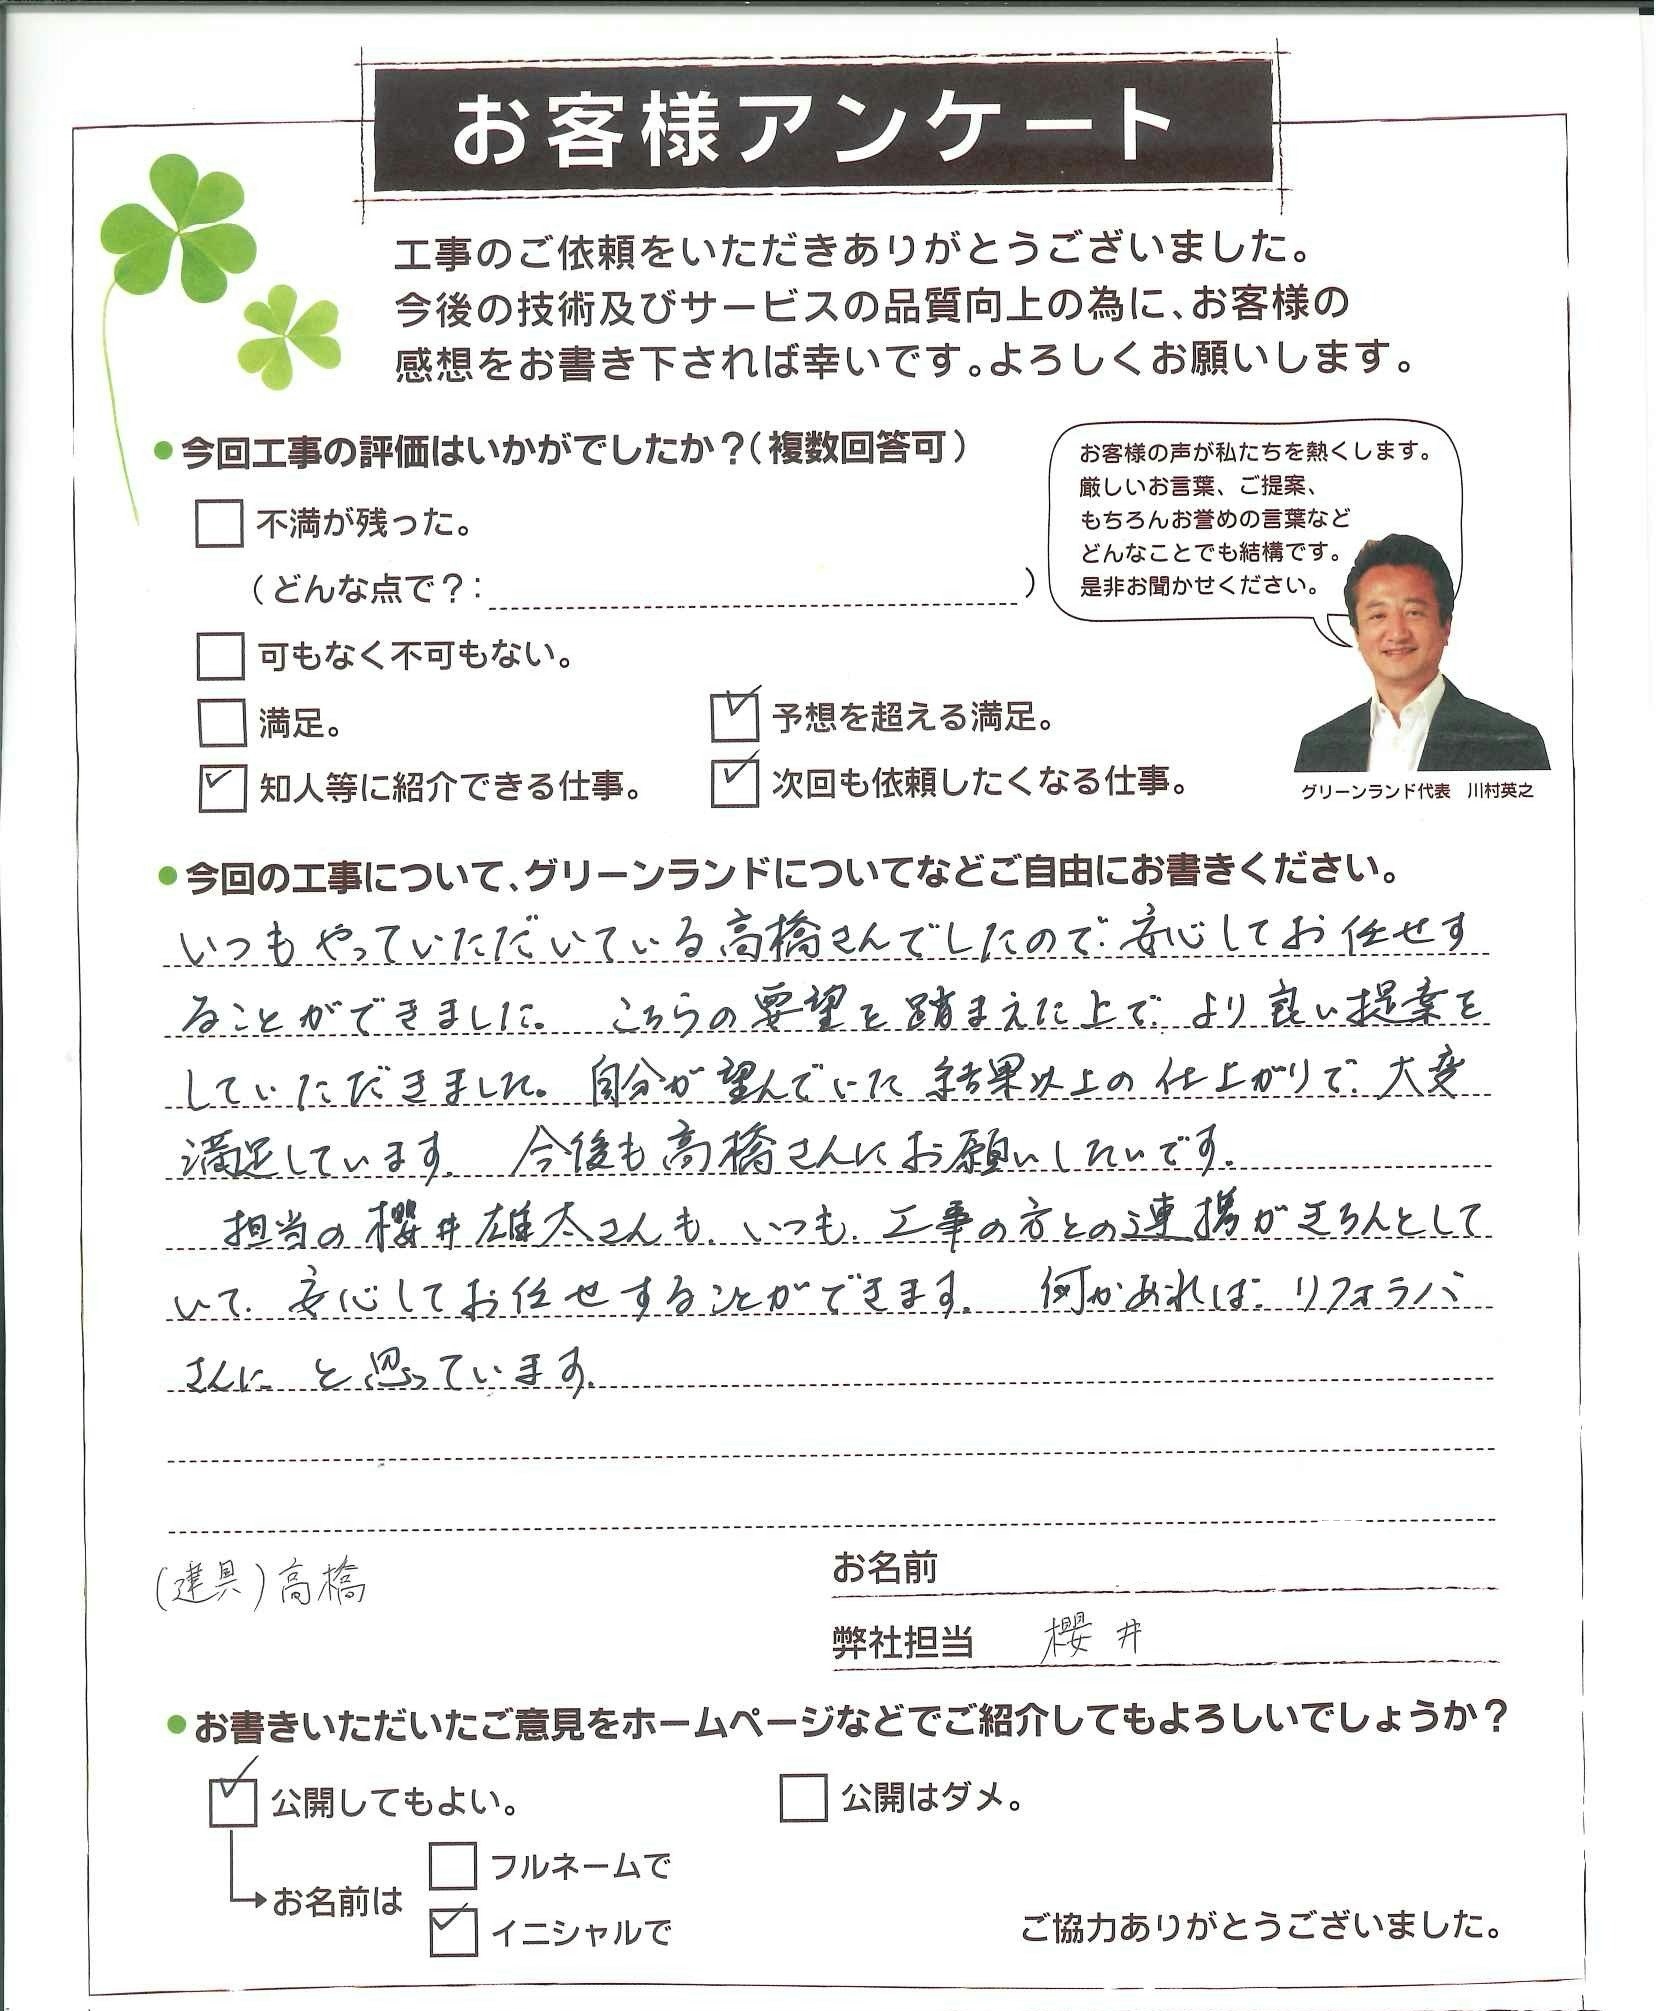 お客様アンケート
工事のご依頼をいただきありがとうございました。
今後の技術及びサービスの品質向上の為に、お客様の
感想をお書き下されば幸いです。よろしくお願いします。
●今回工事の評価はいかがでしたか？（複数回答可）
不満が残った。
（どんな点で？： ）
可もなく不可もない。
満足。
予想を超える満足。
知人等に紹介できる仕事。
次回も依頼したくなる仕事。
お客様の声が私たちを熱くします。
厳しいお言葉、ご提案、
もちろんお誉めの言葉など
どんなことでも結構です。
是非お聞かせください。
グリーンランド代表 川村英之
●今回の工事について、グリーンランドについてなどご自由にお書きください。
いつもやっていただいている高橋さんでしたので、安心してお任せす
ることができました。 こちらの要望を踏まえた上で、より良い提案を
していただきました。自分が望んでいた結果以上の仕上がりで、大変
満足しています。 今後も高橋さんにお願いしたいです。
担当の櫻井雄太さんも、いつも、工事の方との連携がきちんとして
いて、安心してお任せすることができます。 何かあれば、リフォラバ
さんに、と思っています。
(建具)高橋
お名前
弊社担当 櫻井
●お書きいただいたご意見をホームページなどでご紹介してもよろしいでしょうか？
公開してもよい。
公開はダメ。
お名前は
フルネームで
イニシャルで
ご協力ありがとうございました。